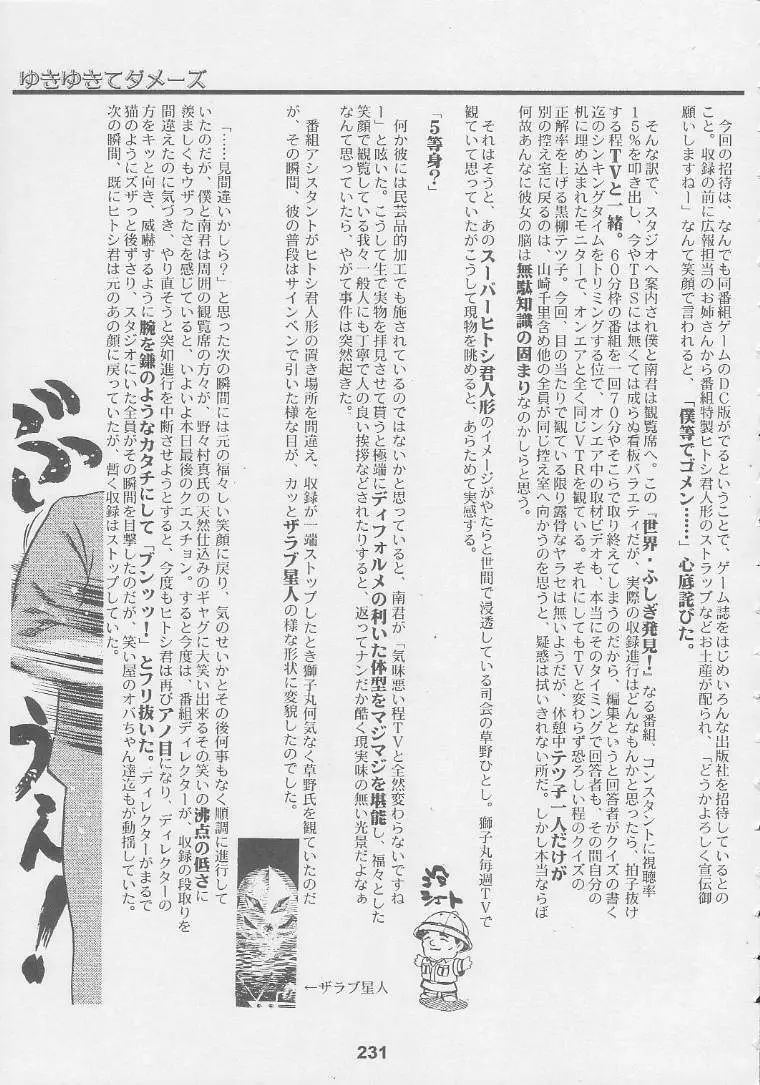 ゆきゆきてダメーズ
今回の招待は、なんでも同番組ゲームのDC版がでるということで、ゲーム誌をはじめいろんな出版社を招待しているとの
こと。収録の前に広報担当のお姉さんから番組特製ヒトシ君人形のストラップなどお土産が配られ、「どうかよろしく宣伝御
願いしますねー」なんて笑顔で言われると、「僕等でゴメン……」心底詫びた。
そんな訳で、スタジオへ案内され僕と南君は観覧席へ。この『世界・ふしぎ発見！』なる番組、コンスタントに視聴率
15％を叩き出し、今やTBSには無くては成らぬ看板バラエティだが、実際の収録進行はどんなもんかと思ったら、拍子抜け
する程TVと一緒。60分枠の番組を一回70分やそこらで取り終えてしまうのだから、編集というと回答者がクイズの書く
迄のシンキングタイムをトリミングする位で、オンエア中の取材ビデオも、本当にそのタイミングで回答者も、その間自分の
机に埋め込まれたモニターで、オンエアと全く同じVTRを観ている。それにしてもTVと変わらず恐ろしい程のクイズの
正解率を上げる黒柳テツ子。今回、目の当たりで観ている限り露骨なヤラセは無いようだが、休憩中テツ子一人だけが
別の控え室に戻るのは、山崎千里含め他の全員が同じ控え室へ向かうのを思うと、疑惑は拭いきれない所だ。しかし本当ならば
何故あんなに彼女の脳は無駄知識の固まりなのかしらと思う。
それはそうと、あのスーパーヒトシ君人形のイメージがやたらと世間で浸透している司会の草野ひとし。獅子丸毎週TVで
観ていて思っていたがこうして現物を眺めると、あらためて実感する。
「5等身？」
何か彼には民芸品的加工でも施されているのではないかと思っていると、南君が「気味悪い程TVと全然変わらないですね
ー」と呟いた。こうして生で実物を拝見させて貰うと極端にディフォルメの利いた体型をマジマジを堪能し、福々とした
笑顔で観覧している我々一般人にも丁寧で人の良い挨拶などされたりすると、返ってナンだか酷く現実味の無い光景だよなぁ
なんて思っていたら、やがて事件は突然起きた。
番組アシスタントがヒトシ君人形の置き場所を間違え、収録が一端ストップしたとき獅子丸何気なく草野氏を観ていたのだ
が、その瞬間、彼の普段はサインペンで引いた様な目が、カッとザラブ星人の様な形状に変貌したのでした。
「……見間違いかしら？」と思った次の瞬間には元の福々しい笑顔に戻り、気のせいかとその後何事もなく順調に進行して
いたのだが、僕と南君は周囲の観覧席の方々が、野々村真氏の天然仕込みのギャグに大笑い出来るその笑いの沸点の低さに
羨ましくもウザったさを感じていると、いよいよ本日最後のクエスチョン。すると今度は、番組ディレクターが、収録の段取りを
間違えたのに気づき、やり直そうと突如進行を中断させようとすると、今度もヒトシ君は再びアノ目になり、ディレクターの
方をキッと向き、威嚇するように腕を鎌のようなカタチにして「ブンッッ！」とフリ抜いた。ディレクターがまるで
猫のようにズザっと後ずさり、スタジオにいた全員がその瞬間を目撃したのだが、笑い屋のオバちゃん達迄もが動揺していた。
次の瞬間、既にヒトシ君は元のあの顔に戻っていたが、暫く収録はストップしていた。
←ザラブ星人
231